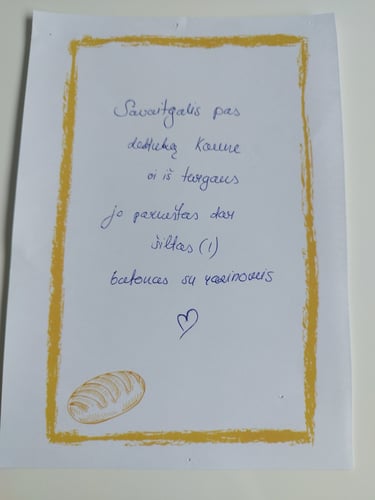 Savaitgalis pas
dėdiuką Kaune
oi iš turgaus
jo parneštas dar
šiltas (!)
batonas su razinomis